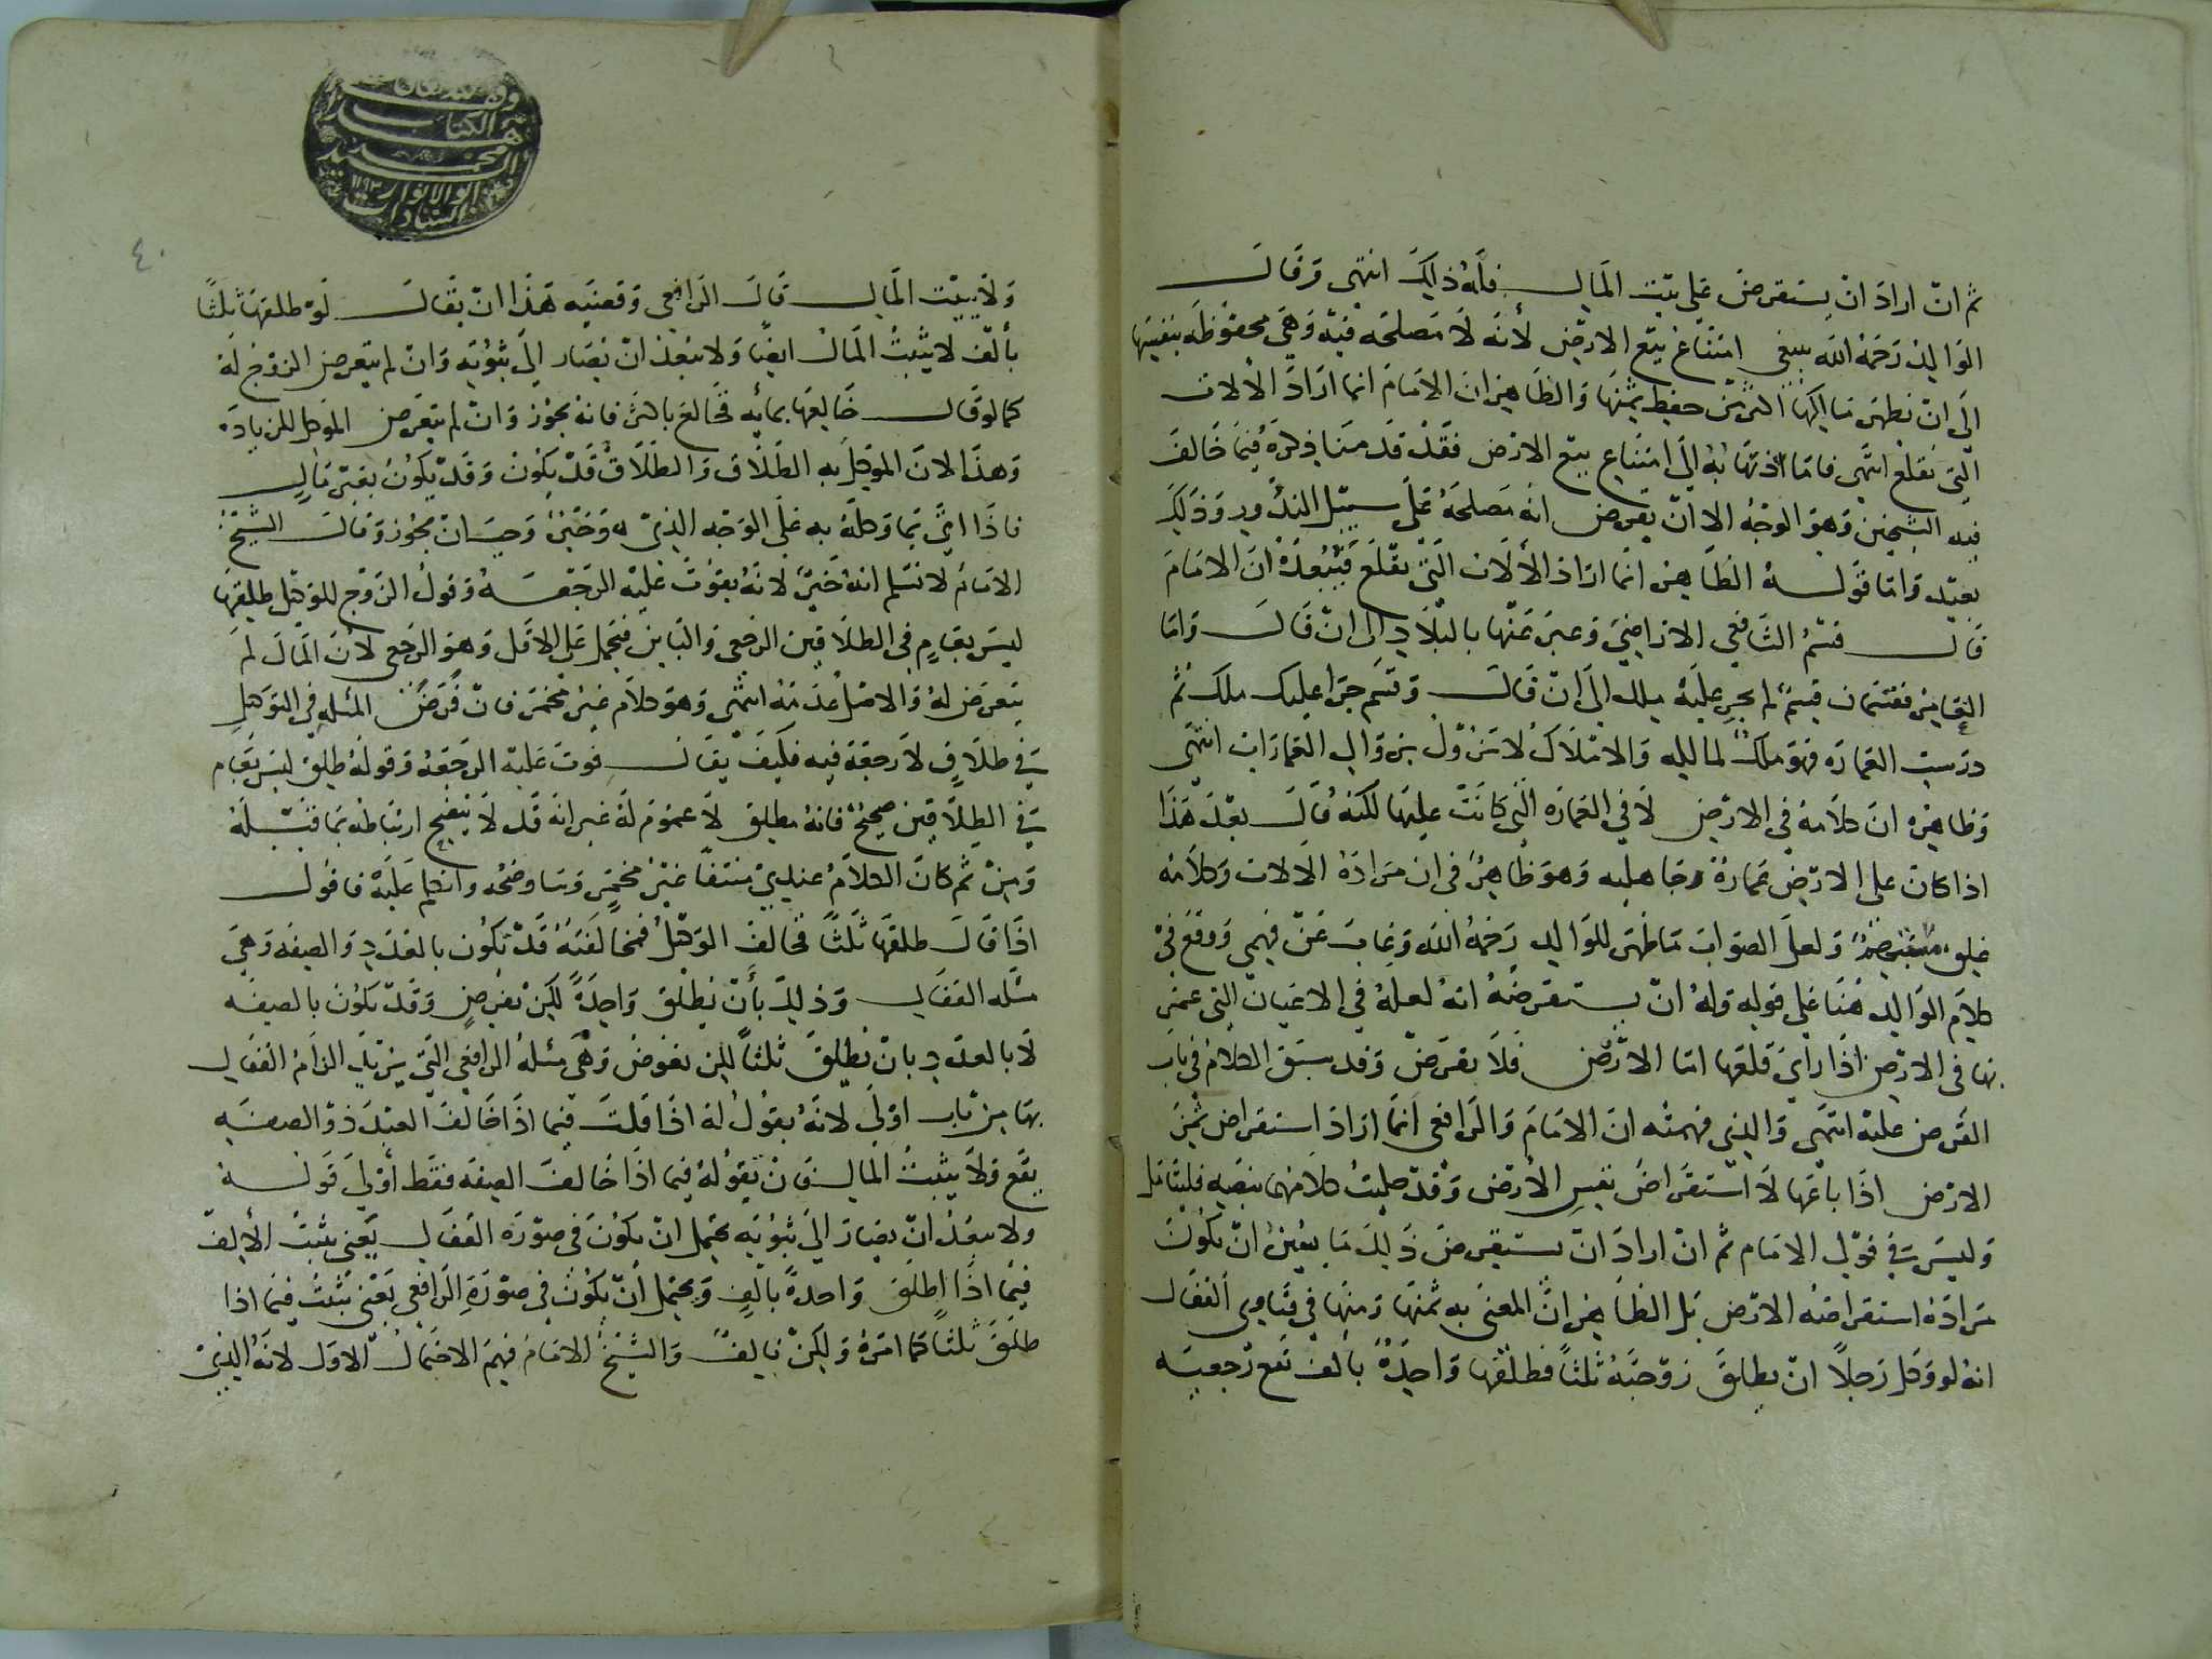 ثم ان اراد ان يستقرض على بيت المال فله ذلك انتهى وقال
الوالد رحمه الله ينبغي امتناع بيع الارض لأنه لا مصلحه فيه وهي محفوظه بنفسها
الى ان يظهر مالكها اكثر من حفظ ثمنها والظاهر ان الامام انما اراد الالات
التي تقلع انتهى فاما به الى امتناع بيع الارض فقد قدمنا ذكره فيما خالف
فيه الشيخين وهو الوجه الا ان يفرض انه مصلحه على سبيل الندور وذلك
بعيد واما قوله الظاهر انما اراد الألات التي تقلع فيبعده ان الامام
قال قسم الشافعي الاراضي وعبر عنها بالبلاد الى ان قال واما
الغامر فقسمان قسم لم يجر عليه ملك الى ان قال وقسم جرا عليه ملك ثم
درست العمارة فهو ملك لمالكه والاملاك لا تزول بزوال العمارات انتهى
وظاهره ان كلامه في الارض لا في العماره التي كانت عليها لكنه قال بعد هذا
اذا كان على الارض عمارة جاهليه وهو ظاهر في ان مراده الالات وكلامه
ولعل الصواب ما ظهر للوالد رحمه الله وغاب عن فهمي ووقع في
كلام الوالد هنا على قوله وله ان يستقرضه انه لعله في الاعيان التي عمر
بها في الارض اذا راي قلعها اما الارض فلا يقرض وقد سبق الكلام في باب
القرض عليه انتهى والذي فهمته ان الامام والرافعي انما ارادا استقراض ثمن
الارض اذا باعها لا استقراض نفس الارض وقد حكيت كلامهما بنصه فليتامل
وليس في قول الامام ثم ان اراد ان يستقرض ذلك ما يعين ان يكون
مراده استقراضه الارض بل الظاهر ان المعنى به ثمنها ومنها في فتاوى القفال
انه لو وكل رجلا ان يطلق زوجته ثلثا فطلقها واحدة بألف تقع رجعيه
ولا يثبت المال قال الرافعي وقضيه هذا ان يقال لو طلقها ثلثا
بألف لا يثبت المال ايضا ولا يبعد ان يصار الى ثبوته وان لم يتعرض الزوج له
كما لو قال خالعها بمائه فخالع باكثر فانه يجوز وان لم يتعرض الموكل للزيادة
وهذا لان الموكل به الطلاق والطلاق قد يكون وقد يكون بغير مال
فاذا اتى بما وكله به على الوجه الذي هو خير وجب ان يجوز وقال الشيخ
الامام لا نسلم انه خير لانه يفوت عليه الرجعه وقول الزوج للوكيل طلقها
ليس بعام في الطلاقين الرجعي والباين فيحمل على الاقل وهو الرجعي لان المال لم
يتعرض له والاصل عدمه انتهى وهو كلام غير مخمر فان فرض المسله في التوكيل
في طلاق لا رجعة فيه فكيف يقال فوت عليه الرجعة وقوله طلق ليس بعام
في الطلاقين صحيح فانه مطلق لا عموم له غير انه قد لا يتضح ارتباطه بما قبله
ومن ثم كان الكلام عندي غير مخمر وساوضحه واتكلم عليه فاقول
اذا قال طلقها ثلثا فخالف الوكيل فمخالفته قد تكون بالعدد والصيغه وهي
مسله القفال وذلك بأن يطلق واحدة لكن بعرض وقد تكون بالصيغه
لا بالعدد بان يطلق ثلثا لكن بعوض وهي مسلة الرافعي التي يريد الزام القفال
بها من باب اولى لانه يقول له اذا قلت فيما اذا خالف العدد والصيغه
يقع ولا يثبت المال فان تقوله فيما اذا خالف الصيغه فقط أولى قوله
ولا يبعد ان يصار الى ثبوته يحتمل ان يكون في صورة القفال يعني يثبت الألف
فيما اذا اطلق واحدة بالف ويحتمل ان يكون في صورة الرافعي يعني يثبت فيما اذا
طلق ثلثا كما امره ولكن بالف والشيخ الامام فهم الاحتمال الاول لانه الذي
٤٠
الكتاب
محمد
ابو الانوار
السادات
١١٩٣